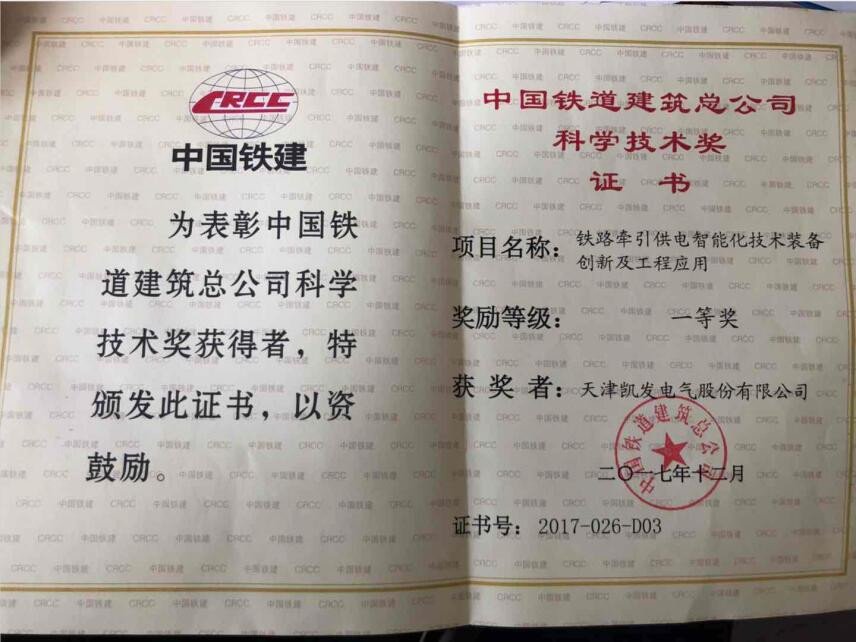 CRCC
中国铁建
为表彰中国铁
道建筑总公司科学
技术奖获得者，特
颁发此证书，以资
鼓励。
中国铁道建筑总公司
科学技术奖
证 书
项目名称：铁路牵引供电智能化技术装备
创新及工程应用
奖励等级： 一等奖
获 奖 者：天津凯发电气股份有限公司
中国铁道建筑总公司
二〇一七年十二月
证书号：2017-026-D03